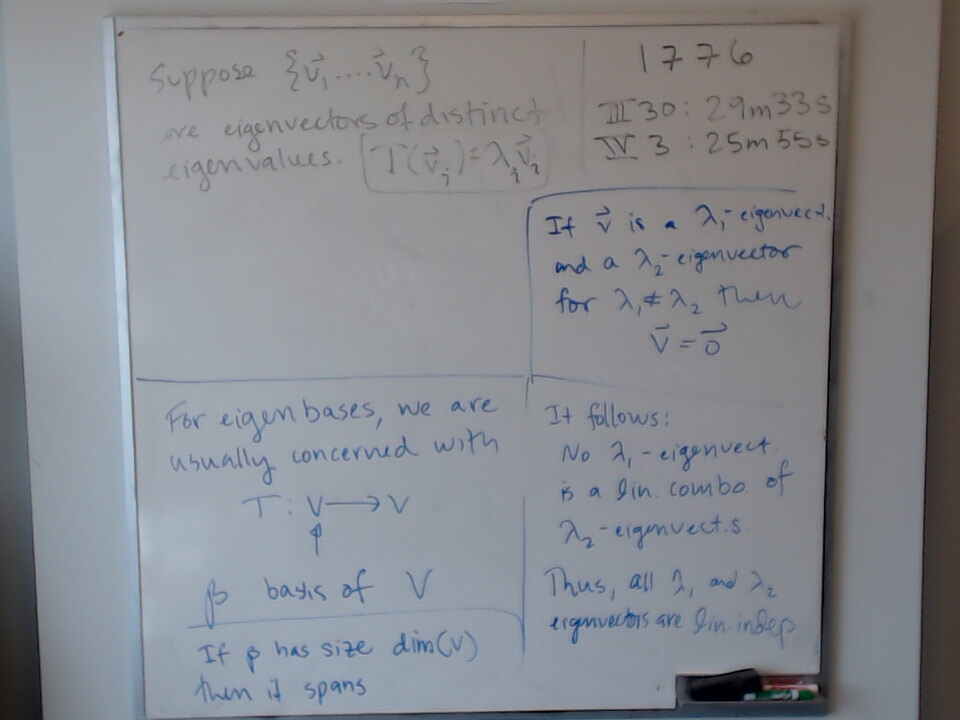 Suppose {v⃗₁....v⃗ₙ}
are eigenvectors of distinct
eigenvalues. T(v⃗ᵢ)=λᵢv⃗ᵢ
1776
III 30: 29m33s
IV 3: 25m55s
If v⃗ is a λ₁-eigenvect.
and a λ₂-eigenvector
for λ₁≠λ₂ then
v⃗ = 0⃗
For eigenbases, we are
usually concerned with
T: V⟶V
β basis of V
If β has size dim(V)
then it spans
It follows:
No λ₁-eigenvect.
is a lin. combo. of
λ₂-eigenvect.s.
Thus, all λ₁ and λ₂
eigenvectors are lin indep